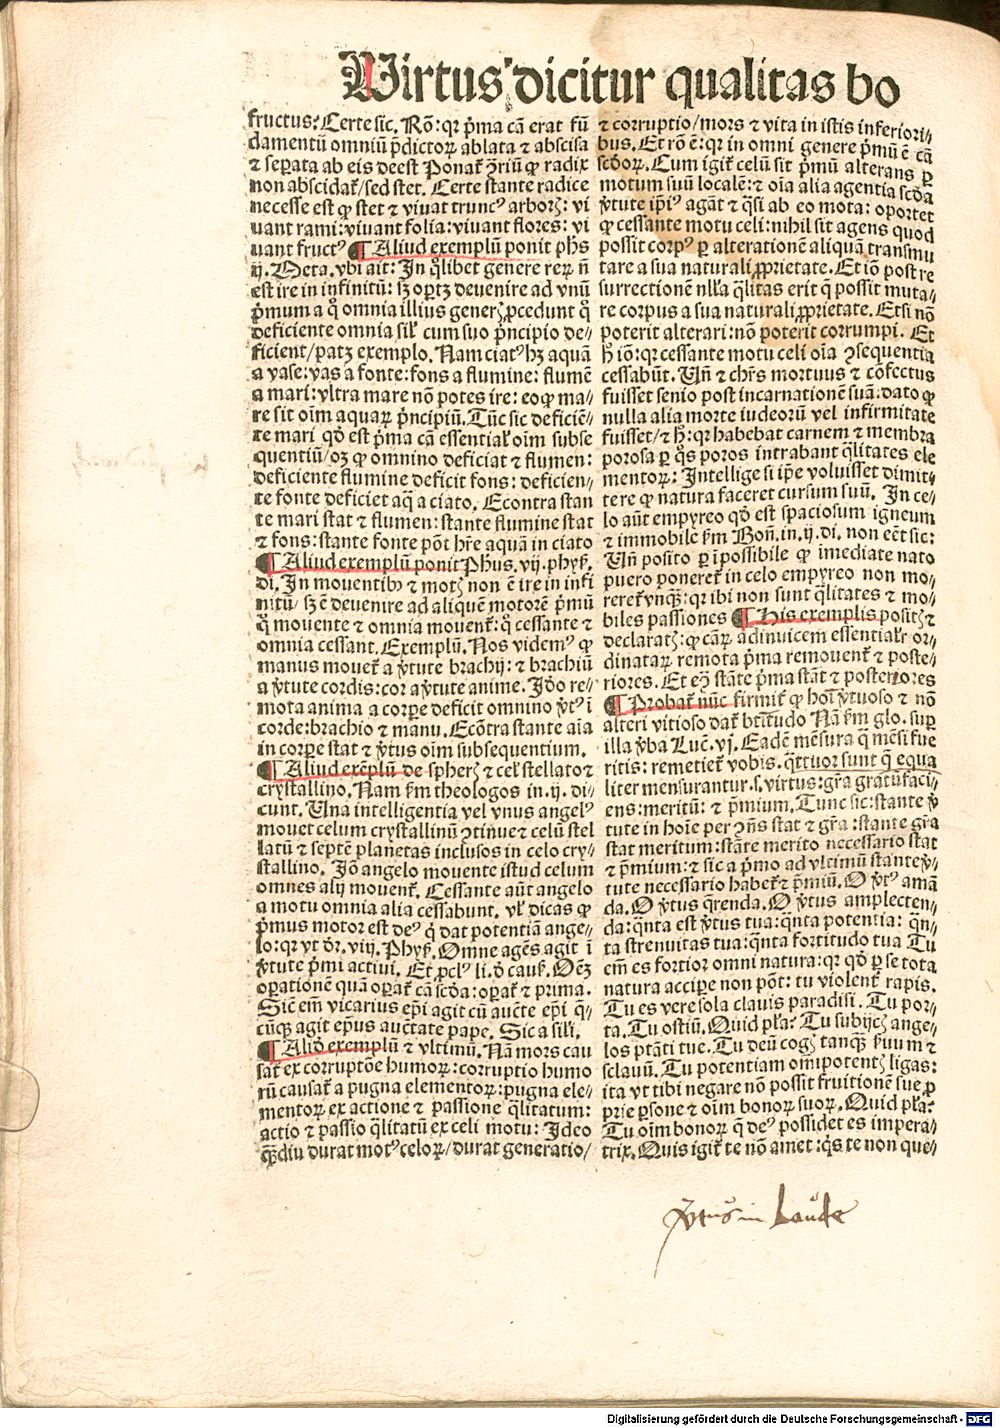 Virtus dicitur qualitas bo
fructus? Certe sic. Rõ: qr p̃ma cã erat fũ
damentũ omniũ p̃dictoꝝ ablata ⁊ abscisa
⁊ sepata ab eis deest Ponat̃ ꝯriũ ꝙ radix
non abscidat̃/sed stet. Certe stante radice
necesse est ꝙ stet ⁊ viuat truncꝰ arboꝝ: vi
uant rami: viuant folia: viuant flores: vi
uant fructꝰ ¶ Aliud exemplũ ponit phs
ij. Meta. vbi ait: In q̃libet genere reꝝ ñ
est ire in infinitũ: sꝫ oportꝫ deuenire ad vnũ
p̃mum a q̃ omnia illius generꝭ pcedunt q̃
deficiente omnia sil̃ cum suo p̃ncipio de⸗
ficient/patꝫ exemplo. Nam ciatꝰ hꝫ aquã
a vase: vas a fonte: fons a flumine: flumẽ
a mari: vltra mare nõ potes ire: eo ꝙ ma⸗
re sit oĩm aquaꝝ p̃ncipiũ. Tũc sic deficiẽ⸗
te mari qd̃ est p̃ma cã essential̃ oĩm subse
quentiũ/oꝫ ꝙ omnino deficiat ⁊ flumen:
deficiente flumine deficit fons: deficien⸗
te fonte deficiet aq̃ a ciato. Econtra stan
te mari stat ⁊ flumen: stante flumine stat
⁊ fons: stante fonte põt hr̃e aquã in ciato
¶ Aliud exemplũ ponit Phus. vij. phyẜ.
di. In mouentibꝰ ⁊ motꝭ non ẽ ire in infi
nitũ/ sꝫ ẽ deuenire ad aliquẽ motorẽ p̃mũ
q̃ mouente ⁊ omnia mouent̃: q̃ cessante ⁊
omnia cessant. Exemplũ. Nos videmꝰ ꝙ
manus mouet̃ a ṽtute brachij: ⁊ brachiũ
a ṽtute cordis: cor a ṽtute anime. Id̃o re⸗
mota anima a corpe deficit omnino ṽtꝰ ĩ
corde: brachio ⁊ manu. Ecõtra stante aĩa
in corpe stat ⁊ ṽtus oĩm subsequentium.
¶ Aliud exẽplũ de spherꝭ ⁊ cel̃ stellato ⁊
crystallino. Nam ẜm theologos in. ij. di⸗
cunt. Vna intelligentia vel vnus angelꝰ
mouet celum crystallinũ ꝯtinue ⁊ celũ stel
latũ ⁊ septẽ planetas inclusos in celo cry⸗
stallino. Iõ angelo mouente istud celum
omnes alij mouent̃. Cessante aũt angelo
a motu omnia alia cessabunt. vl̃ dicas ꝙ
p̃mus motor est deꝰ q̃ dat potentiã ange⸗
lo: qr vt dr̃. viij. Phyẜ. Omne agẽs agit ĩ
ṽtute p̃mi actiui. Et pclꝰ li. d̃ cauẜ. Oẽꝫ
opationẽ quã opat̃ cã scd̃a: opat̃ ⁊ prima.
Sic em̃ vicarius ep̃i agit cũ aucte ep̃i q̃⸗
cũqꝫ agit ep̃us auctate pape. Sic a sil̃i.
¶ Aliđ exemplũ ⁊ vltimũ. Nã mors cau
sat̃ ex corruptõe humoꝝ: corruptio humo
rũ causat̃ a pugna elementoꝝ: pugna ele⸗
mentoꝝ ex actione ⁊ passione q̃litatum:
actio ⁊ passio q̃litatũ ex celi motu: Ideo
qꝫdiu durat motꝰ celoꝝ/ durat generatio/
⁊ corruptio/ mors ⁊ vita in istis inferiori⸗
bus. Et rõ ẽ: qr in omni genere p̃mũ ẽ cã
scd̃oꝝ. Cum igit̃ celũ sit p̃mũ alterans ꝑ
motum suũ localẽ: ⁊ oĩa alia agentia scd̃a
ṽtute ip̃iꝰ agãt ⁊ q̃si ab eo mota: oportet
ꝙ cessante motu celi: nihil sit agens quod
possit corpꝰ ꝑ alterationẽ aliquã transmu
tare a sua naturali prietate. Et iõ post re
surrectionẽ nll̃a q̃litas erit q̃ possit muta⸗
re corpus a sua naturali prietate. Etsi nõ
poterit alterari: nõ poterit corrumpi. Et
h̃ iõ: qr cessante motu celi oĩa ꝯsequentia
cessabũt. Vñ ⁊ chr̃s mortuus ⁊ cõfectus
fuisset senio post incarnationẽ suã: dato ꝙ
nulla alia morte iudeorũ vel infirmitate
fuisset/ ⁊ h̃: qr habebat carnem ⁊ membra
porosa ꝑ q̃s poros intrabant q̃litates ele
mentoꝝ: Intellige si ip̃e voluisset dimit⸗
tere ꝙ natura faceret cursum suũ. In ce⸗
lo aũt empyreo qd̃ est spaciosum igneum
⁊ immobile ẜm Boñ. in. ij. di. non eẽt sic:
Vñ posito ꝑ ĩpossibile ꝙ imediate nato
puero poneret̃ in celo empyreo non mo⸗
reret̃ vnqꝫ: qr ibi non sunt q̃litates ⁊ mo⸗
biles passiones ¶ His exemplis positꝭ ⁊
declaratꝭ: ꝙ caꝝ adinuicem essential̃r or⸗
dinataꝝ remota p̃ma remouent̃ ⁊ poste⸗
riores. Et eꝭ stãte p̃ma stãt ⁊ posteriores
¶ Probat̃ nũc firmit̃ ꝙ hoĩ ṽtuoso ⁊ nõ
alteri vitioso dat̃ btĩtudo Nã ẜm glo. suꝑ
illa ṽba Luc̃. vj. Eadẽ mẽsura q̃ mẽsi fue
ritis: remetiet̃ vobis. q̃ttuor sunt q̃ equa
liter mensurantur. s. virtus: gr̃a gratũfaci
ens: meritũ: ⁊ p̃mium. Tunc sic: stante ṽ
tute in hoĩe per ꝯñs stat ⁊ gr̃a: stante gr̃a
stat meritum: stãte merito necessario stat
⁊ p̃mium: ⁊ sic a p̃mo ad vltimũ stante ṽ⸗
tute necessario habet̃ ⁊ p̃miũ. O ṽtꝰ amã
da. O ṽtus q̃renda. O ṽtus amplecten⸗
da: q̃nta est ṽtus tua: q̃nta potentia: q̃n⸗
ta strenuitas tua: q̃nta fortitudo tua Tu
em̃ es fortior omni natura: qr qd̃ ꝑ se tota
natura accipe non põt: tu violent̃ rapis.
Tu es vere sola clauis paradisi. Tu por⸗
ta. Tu ostiũ. Quid pl̃a? Tu subijcꝭ ange⸗
los ptãti tue. Tu deũ cogꝭ tanqꝫ ẜuum ⁊
sclauũ. Tu potentiam om̃ipotentꝭ ligas:
ita vt tibi negare nõ possit fruitionẽ sue ꝓ
prie psone ⁊ oĩm bonoꝝ suoꝝ. Quid pl̃a?
Tu oĩm bonoꝝ q̃ deꝰ possidet es impera⸗
trix. Quis igit̃ te nõ amet: q̃s te non que⸗
ṽtus in laude
Digitalisierung gefördert durch die Deutsche Forschungsgemeinschaft - DFG